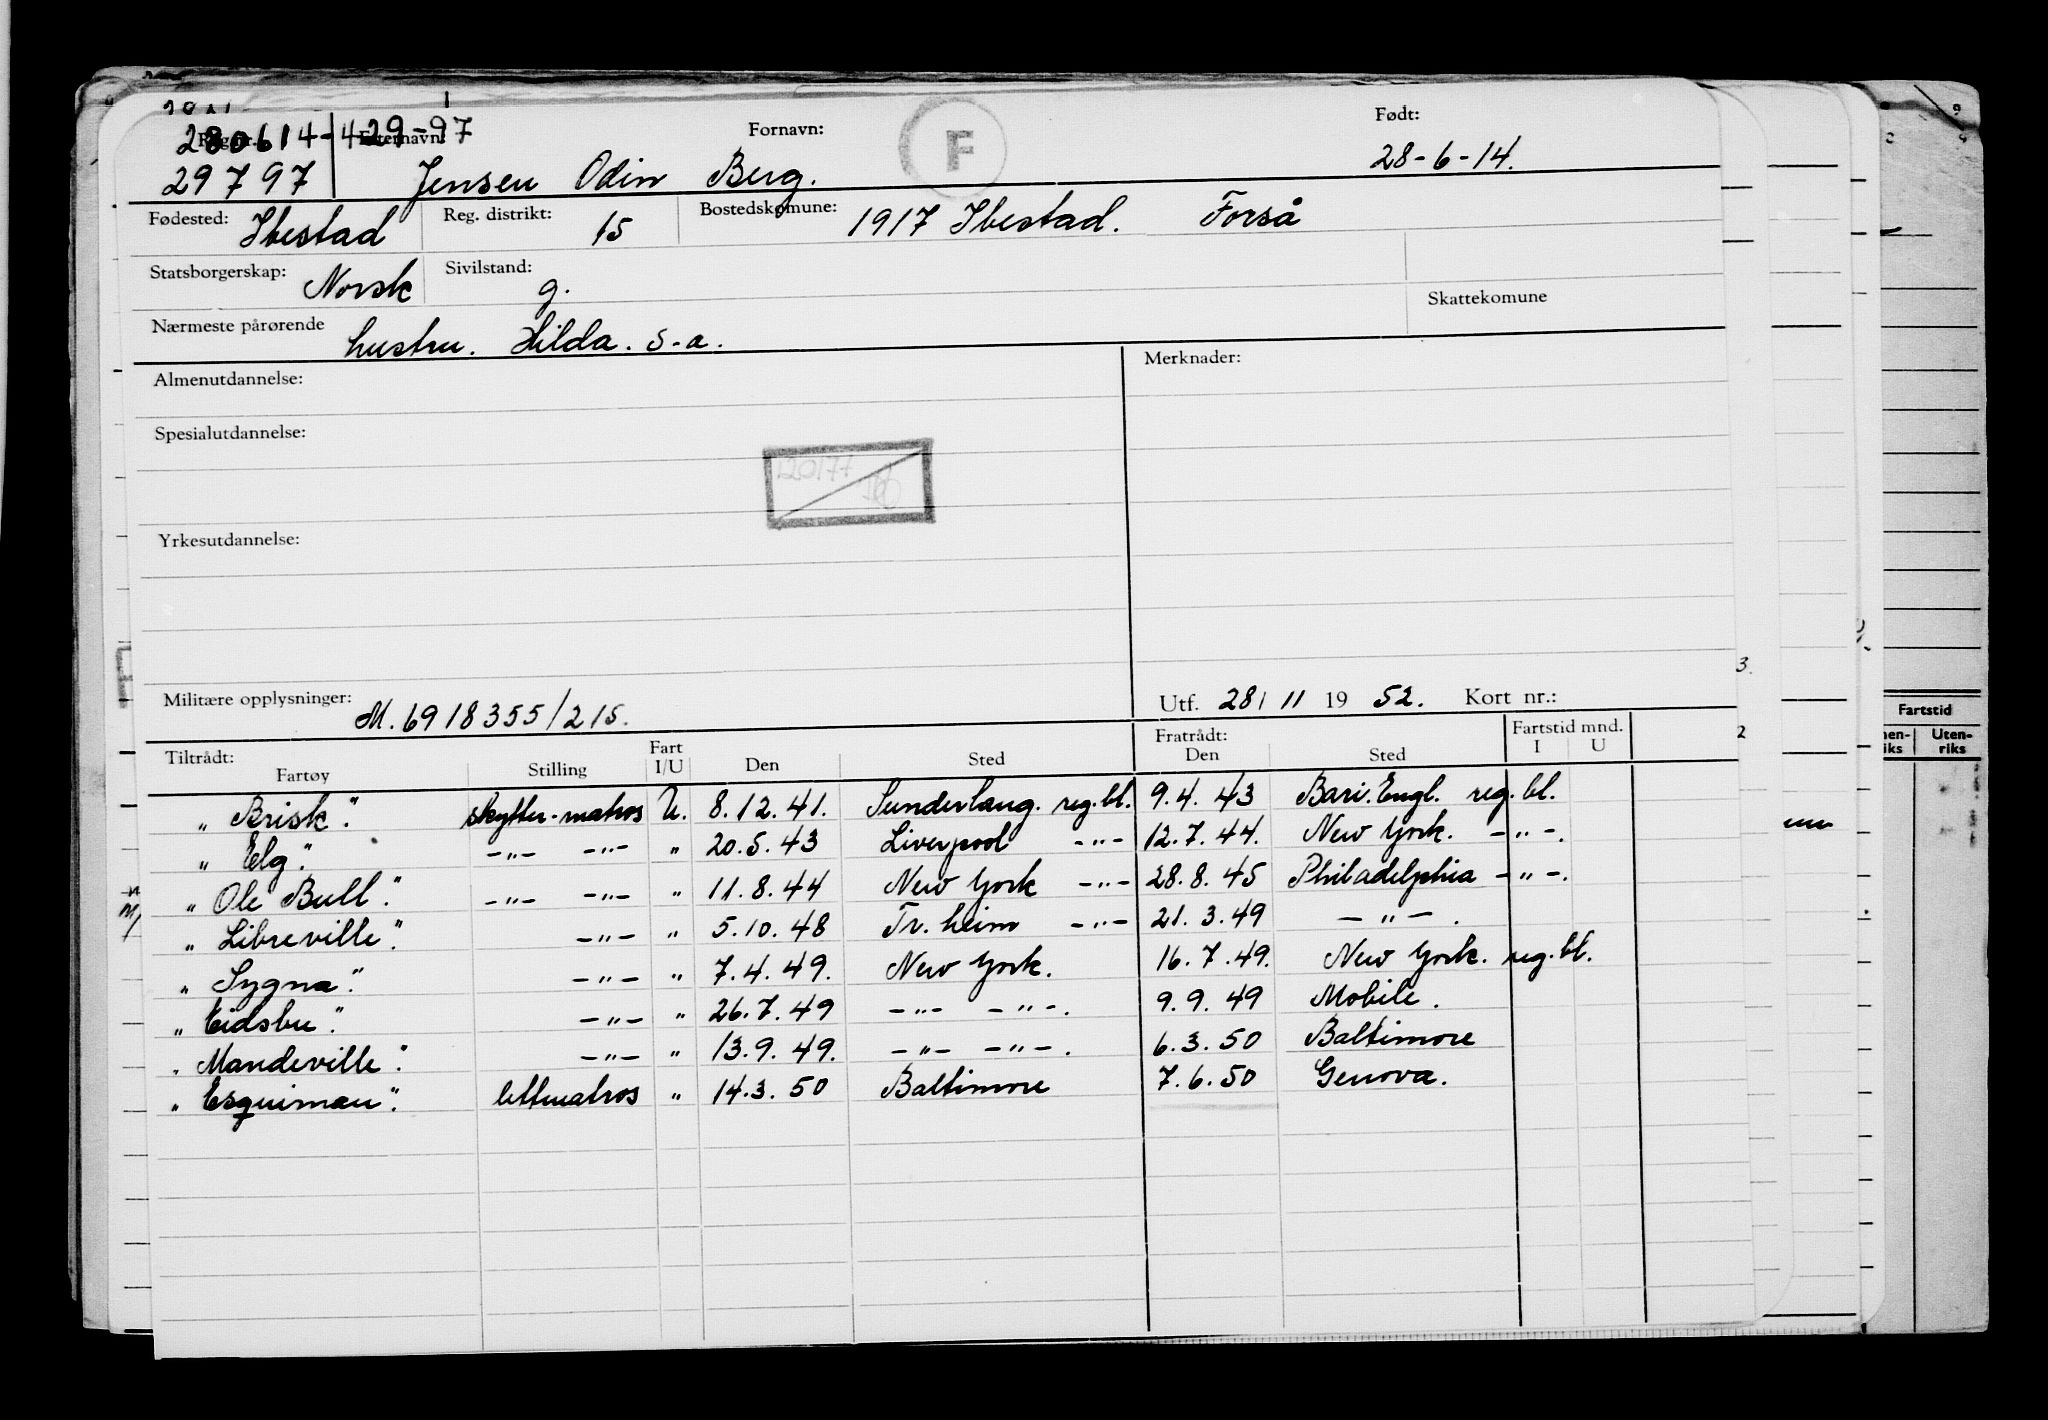 280614-429-97
Reg. nr. Etternavn: Fornavn: F Født:
29797 Jensen Odin Berg. 28-6-14.
Fødested: Ibestad Reg. distrikt: 15 Bostedskomune: 1917 Ibestad. Forså
Statsborgerskap: Norsk Sivilstand: g.
Skattekomune
Nærmeste pårørende hustru. Hilda. s-a.
Almenutdannelse: Merknader:
Spesialutdannelse:
Yrkesutdannelse:
Militære opplysninger: M. 6918355/215. Utf. 28/ 11 19 52. Kort nr.:
Tiltrådt: Fart Fratrådt: Fartstid mnd.
Fartøy Stilling I/U Den Sted Den Sted I U
„ Brisk". skytter-matros U. 8.12.41. Sunderlang. reg.bl. 9.4.43 Bari.Engl. reg.bl.
„ Elg". -"- -"- " 20.5.43 Liverpool -"- 12.7.44. New York. -"-.
„ Ole Bull". -"- -"- " 11.8.44 New York -"- 28.8.45 Philadelphia -"-.
„ Libreville". -"- " 5.10.48 Tr.heim -"- 21.3.49 -"-.
„ Sygna". -"- " 7.4.49. New York. 16.7.49. New York. reg.bl.
„ Eidsbu". -"- " 26.7.49 -"- -"-. 9.9.49 Mobile.
„ Mandeville". -"- " 13.9.49. -"- -"-. 6.3.50 Baltimore
„ Esquimau". lettmatros " 14.3.50 Baltimore 7.6.50 Genova.
3.
2
Fartstid
Uten-
riks